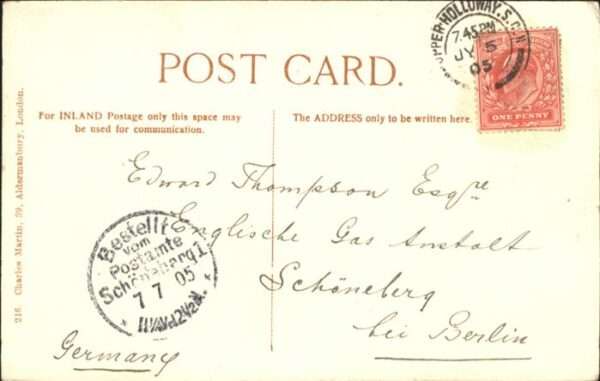 UPPER HOLLOWAY. S.O.N
7.45PM
JY 5
05
POST CARD.
ONE PENNY
For INLAND Postage only this space may
be used for communication.
The ADDRESS only to be written here.
216 Charles Martin, 39, Aldermanbury, London.
Edward Thompson Esqre
Englische Gas Anstalt
Schöneberg
bei Berlin
Germany
Bestellt
vom
Postamte
Schöneberg 1
7 7 05